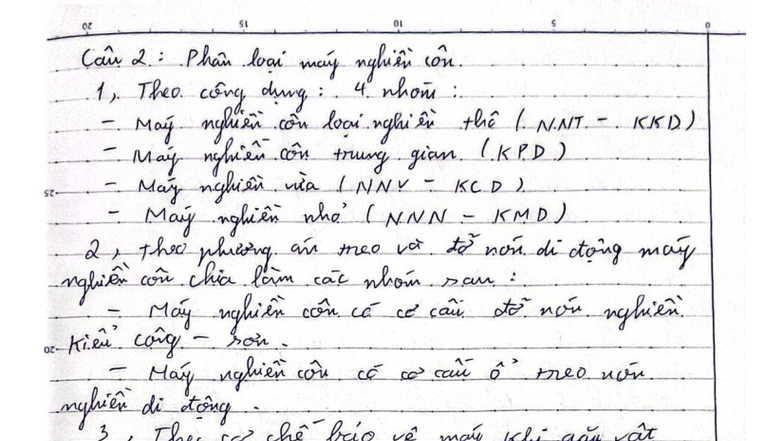 20 15 10 5 0
Câu 2 : Phân loại máy nghiền côn.
1, Theo công dụng : 4 nhóm :
- Máy nghiền côn loại nghiền thô (NNT - KKD)
- Máy nghiền côn trung gian (KPD)
- Máy nghiền vừa (NNV - KCD)
25
- Máy nghiền nhỏ (NNN - KMD)
2, theo phương án treo và đỡ nón di động máy
nghiền côn chia làm các nhóm sau :
- Máy nghiền côn có cơ cấu đỡ nón nghiền
20 Kiểu công - sơn.
- Máy nghiền côn có cơ cấu ổ treo nón
nghiền di động.
3, Theo cơ chế bảo vệ máy khi gặp vật